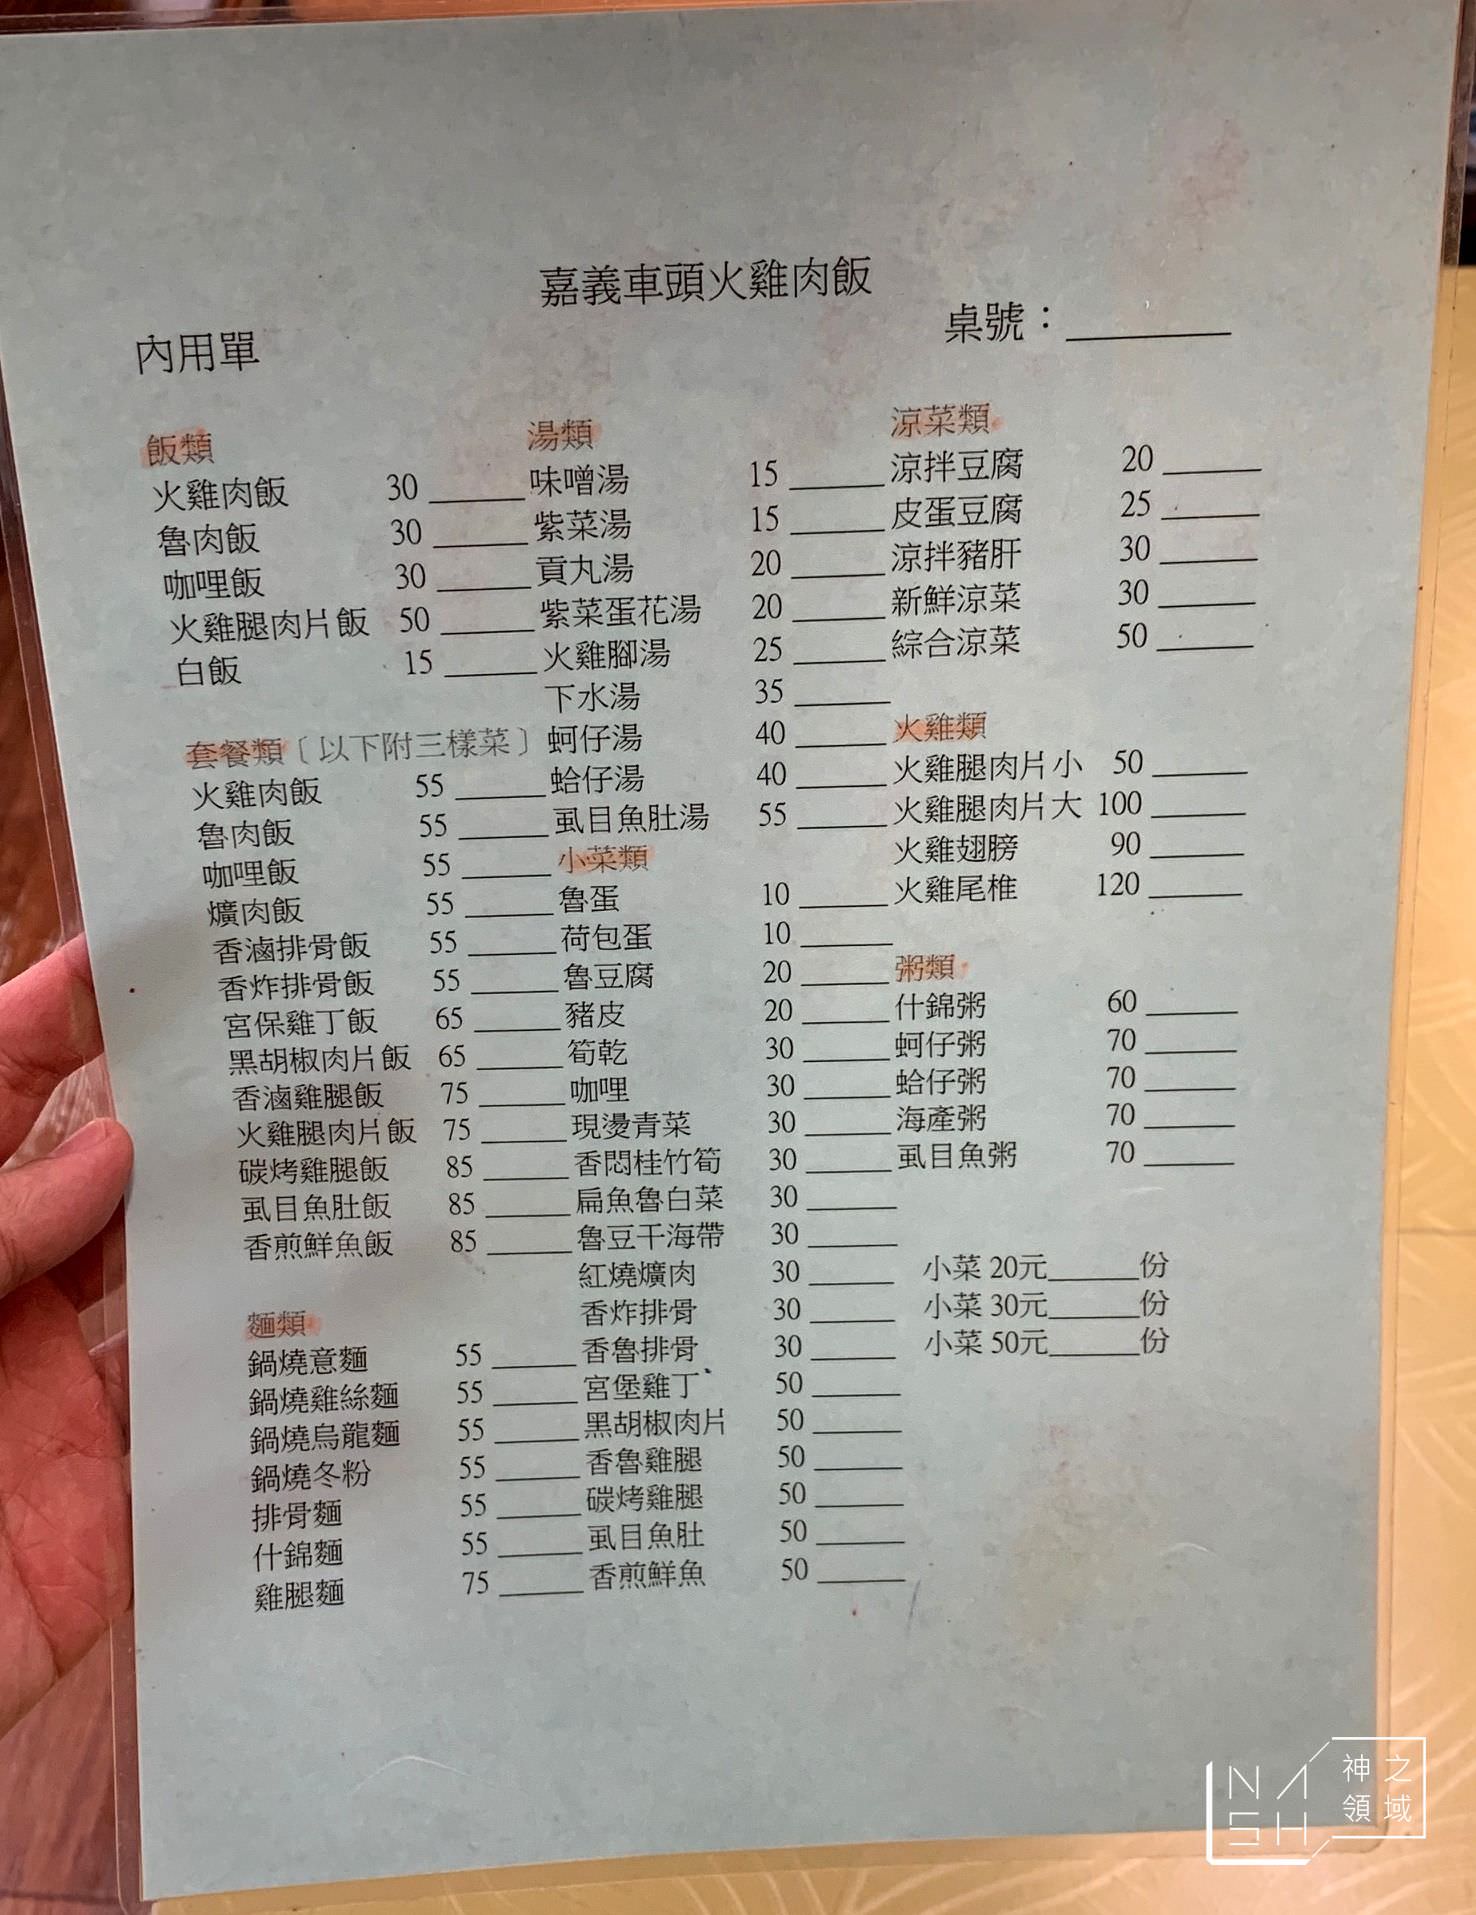 嘉義車頭火雞肉飯
內用單
桌號：________
飯類
火雞肉飯 30 _____
魯肉飯 30 _____
咖哩飯 30 _____
火雞腿肉片飯 50 _____
白飯 15 _____
套餐類〔以下附三樣菜〕
火雞肉飯 55 _____
魯肉飯 55 _____
咖哩飯 55 _____
爌肉飯 55 _____
香滷排骨飯 55 _____
香炸排骨飯 55 _____
宮保雞丁飯 65 _____
黑胡椒肉片飯 65 _____
香滷雞腿飯 75 _____
火雞腿肉片飯 75 _____
碳烤雞腿飯 85 _____
虱目魚肚飯 85 _____
香煎鮮魚飯 85 _____
麵類
鍋燒意麵 55 _____
鍋燒雞絲麵 55 _____
鍋燒烏龍麵 55 _____
鍋燒冬粉 55 _____
排骨麵 55 _____
什錦麵 55 _____
雞腿麵 75 _____
湯類
味噌湯 15 _____
紫菜湯 15 _____
貢丸湯 20 _____
紫菜蛋花湯 20 _____
火雞腳湯 25 _____
下水湯 35 _____
蚵仔湯 40 _____
蛤仔湯 40 _____
虱目魚肚湯 55 _____
小菜類
魯蛋 10 _____
荷包蛋 10 _____
魯豆腐 20 _____
豬皮 20 _____
筍乾 30 _____
咖哩 30 _____
現燙青菜 30 _____
香悶桂竹筍 30 _____
扁魚魯白菜 30 _____
魯豆干海帶 30 _____
紅燒爌肉 30 _____
香炸排骨 30 _____
香魯排骨 30 _____
宮堡雞丁 50 _____
黑胡椒肉片 50 _____
香魯雞腿 50 _____
碳烤雞腿 50 _____
虱目魚肚 50 _____
香煎鮮魚 50 _____
涼菜類
涼拌豆腐 20 _____
皮蛋豆腐 25 _____
涼拌豬肝 30 _____
新鮮涼菜 30 _____
綜合涼菜 50 _____
火雞類
火雞腿肉片小 50 _____
火雞腿肉片大 100 _____
火雞翅膀 90 _____
火雞尾椎 120 _____
粥類
什錦粥 60 _____
蚵仔粥 70 _____
蛤仔粥 70 _____
海產粥 70 _____
虱目魚粥 70 _____
小菜 20元_____份
小菜 30元_____份
小菜 50元_____份
NASH 神之領域